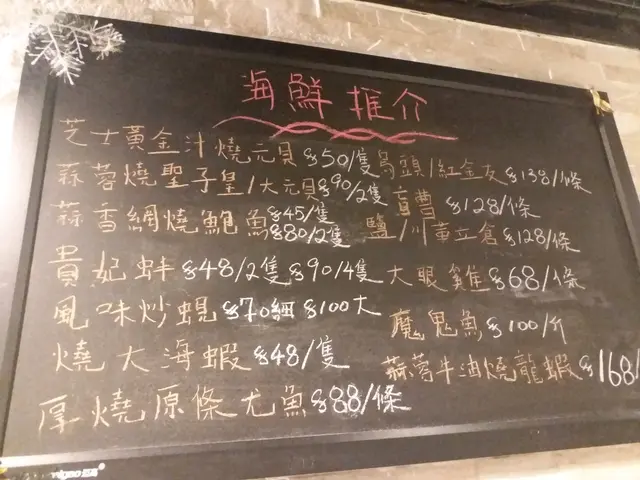 海鮮推介
芝士黃金汁燒元貝 $50/隻
蒜蓉燒聖子皇/大元貝 $90/2隻
蒜香網燒鮑魚 $45/隻
$80/2隻
貴妃蚌 $48/2隻 $90/4隻
風味炒蜆 $70細 $100大
燒大海蝦 $48/隻
厚燒原條尤魚 $88/條
烏頭/紅金友 $138/條
盲曹 $128/條
鹽/川華立倉 $128/條
大眼雞 $68/條
魔鬼魚 $100/斤
蒜蓉牛油燒龍蝦 $168/